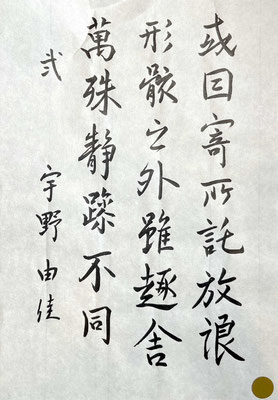 或因寄所託放浪
形骸之外雖趣舍
萬殊静躁不同
弐 宇野由佳